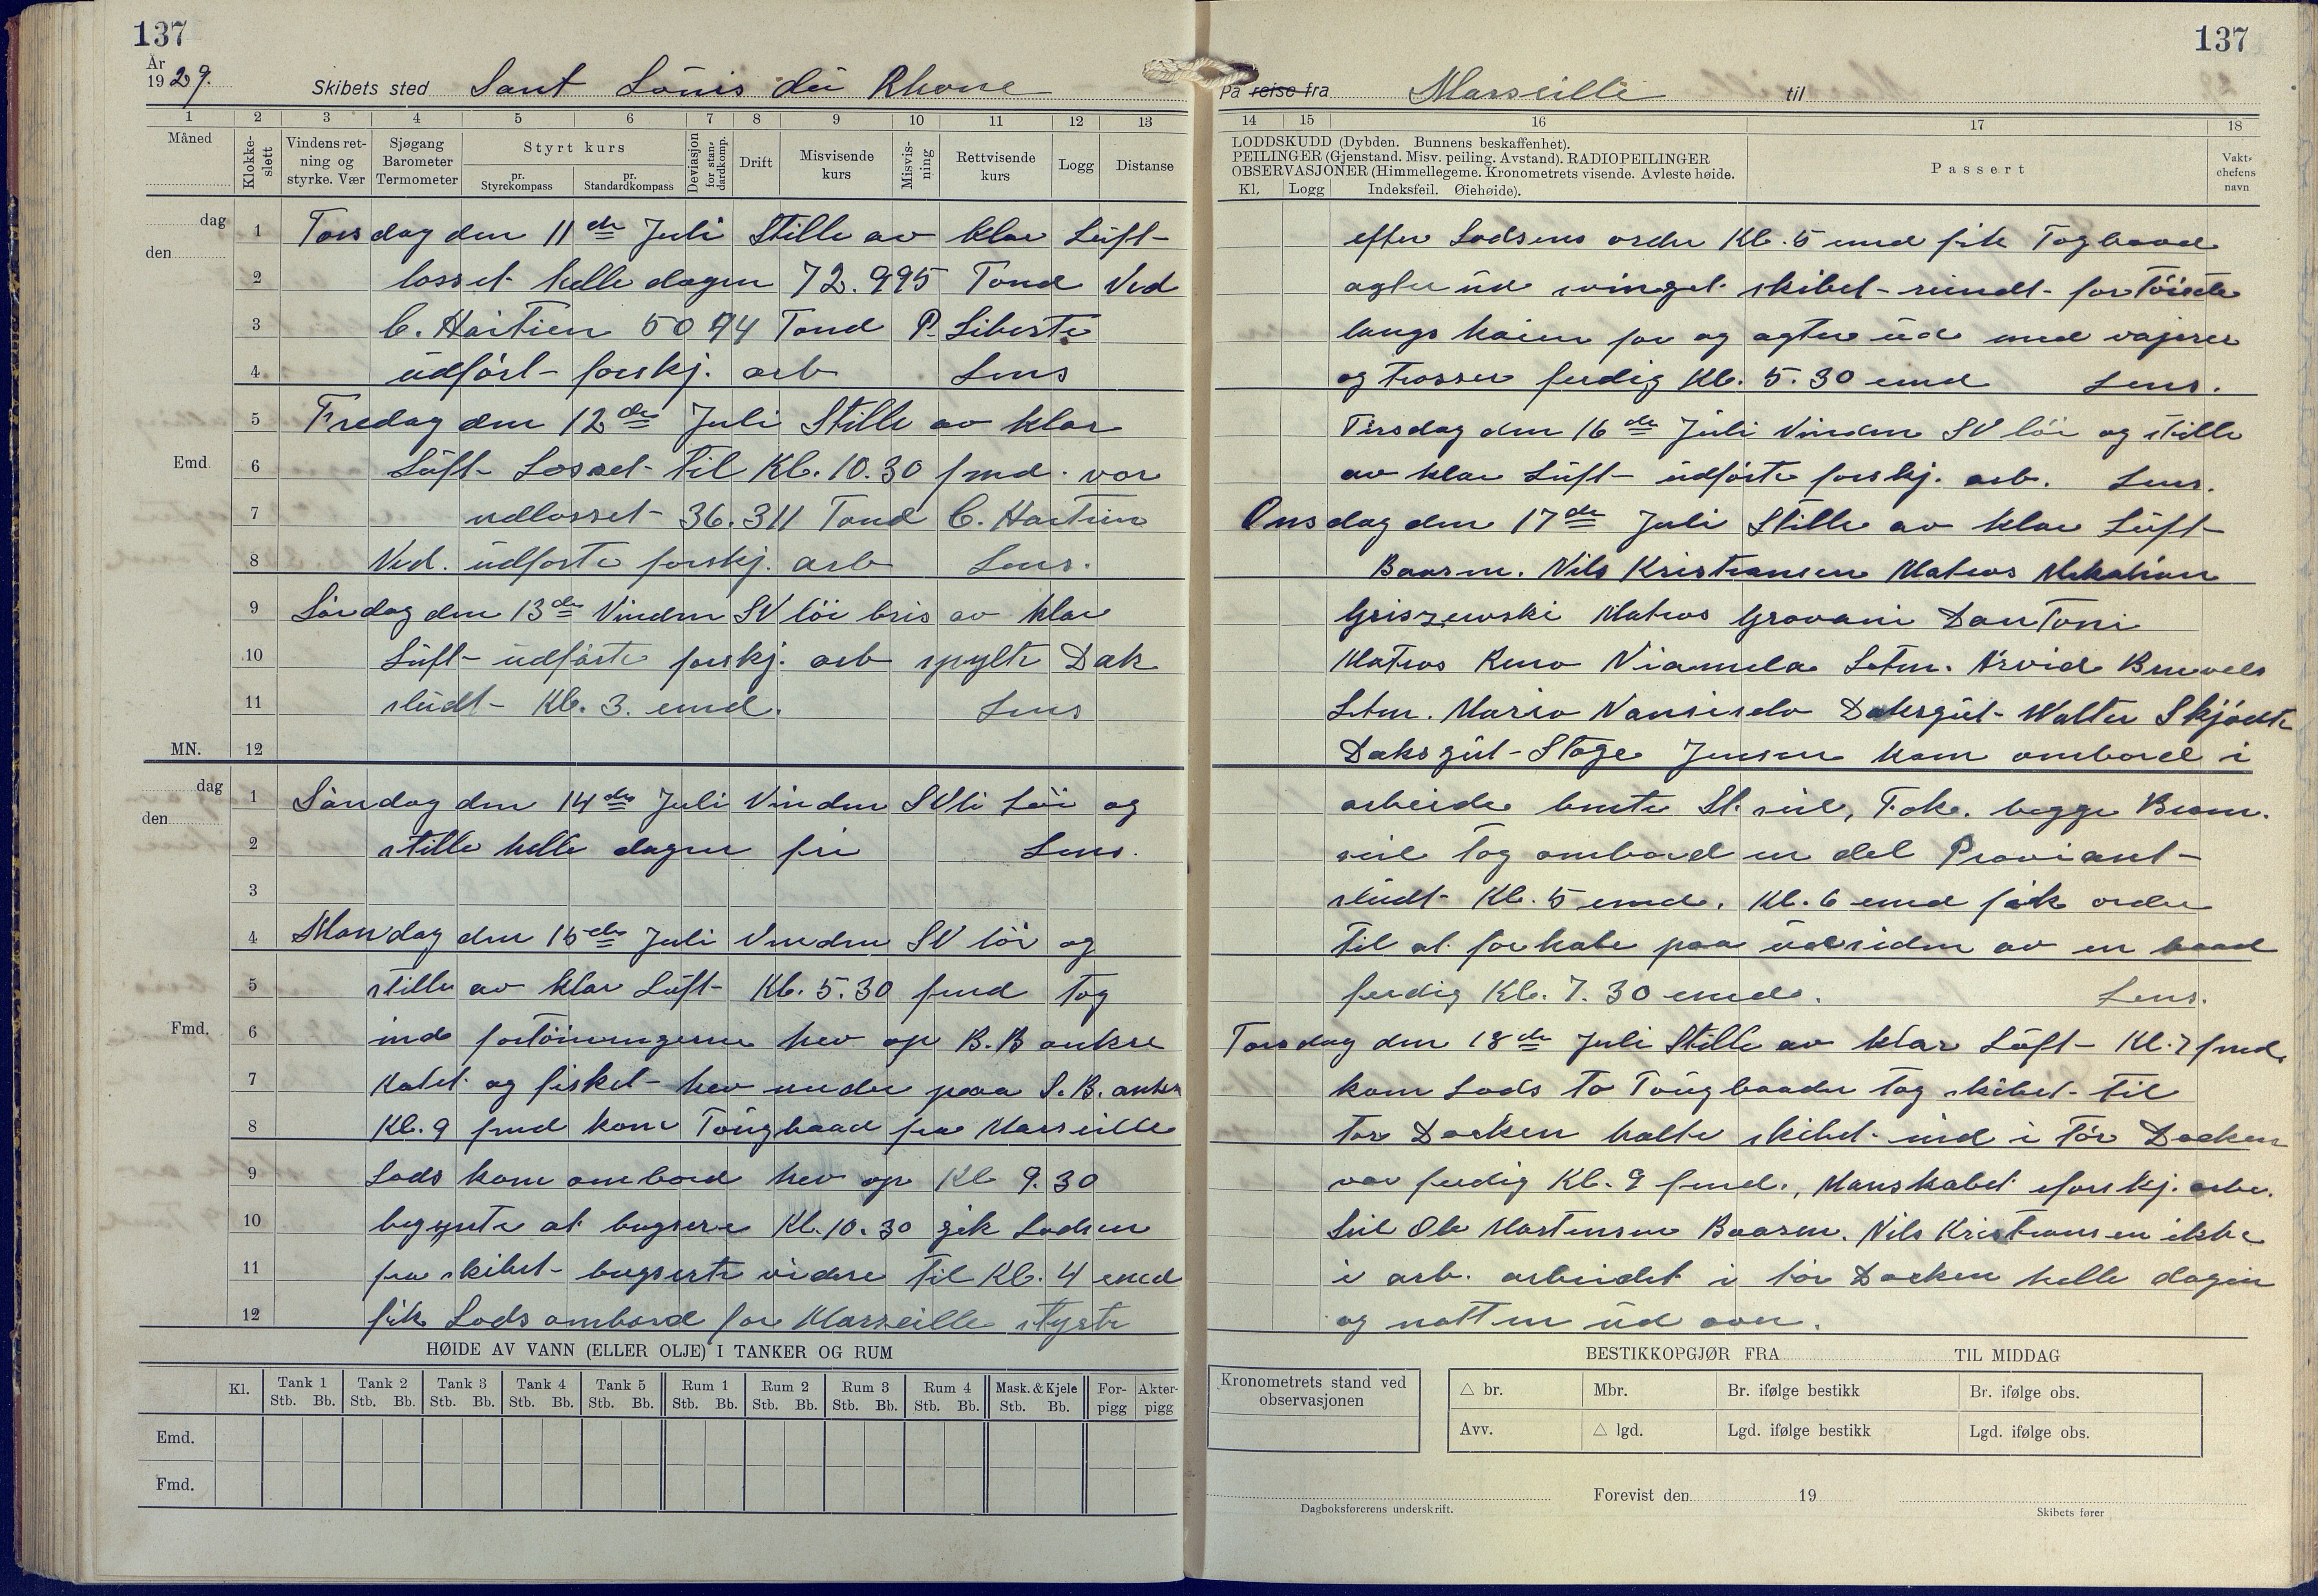 137
137
År
1929.
Skibets sted Sant Louis du Rhone
På reise fra Marseille til
1 2 3 4 5 6 7 8 9 10 11 12 13
14 15 16 17 18
Måned
Klokkeslett
Vindens retning og styrke. Vær
Sjøgang Barometer Termometer
Styrt kurs
pr. Styrekompass
pr. Standardkompass
Deviasjon for standardkomp.
Drift
Misvisende kurs
Misvisning
Rettvisende kurs
Logg
Distanse
LODDSKUDD (Dybden. Bunnens beskaffenhet).
PEILINGER (Gjenstand. Misv. peiling. Avstand). RADIOPEILINGER
OBSERVASJONER (Himmellegeme. Kronometrets visende. Avleste høide.
Kl. Logg Indeksfeil. Øiehøide).
Passert
Vaktchefens navn
dag
den
1 Torsdag den 11de Juli Stille av klar Luft
2 losset helle dagen 72.995 Tond Ved
3 C. Haitien 5074 Tond P. Liberte
4 udført forskj. arb Lens
5 Fredag den 12de Juli Stille av klar
Emd. 6 Luft Losset til Kl. 10.30 fmd. var
7 udlosset 36.311 Tond C. Haitien
8 Ved. udførte forskj. arb Lens.
9 Lördag den 13de Vinden SV löi bris av klar
10 Luft udførte forskj. arb spylte Dæk
11 sludt Kl. 3. emd. Lens
MN. 12
dag
den
1 Søndag den 14de Juli Vinden SVli löi og
2 stille helle dagen fri Lens.
3
4 Mandag den 15de Juli Vinden SV löi og
5 stille av klar Luft Kl. 5.30 fmd tog
Fmd. 6 ind fortöiningerne hev op B.B anker
7 Katet og fisket hev under paa S.B. anker
8 Kl. 9 fmd kom Tougbaad fra Marseille
9 Lods kom ombord hev op Kl 9.30
10 begynte at bugsere Kl. 10.30 gik Lodsen
11 fra skibet bugserte videre til Kl. 4 emd
12 fik Lods ombord for Marseille styrte
efter Lodsens order Kl. 5 emd fik Togbaad
agter ud svinget skibet rundt fortöiede
langs kaien for og agter ud med vajerer
og Trosser ferdig Kl. 5.30 emd Lens.
Tirsdag den 16de Juli Vinden SV löi og stille
av klar Luft udførte forskj. arb. Lens.
Onsdag den 17de Juli Stille av klar Luft
Baasm. Nils Kristiansen Matros
Griszewski Matros Giovani DanToni
Matros Letm. Arvid
Letm. Mario Daksgut Walter Skjødt
Daksgut Stage Jensen kom ombord i
arbeide bente St. seil, Fok. begge Bram.
seil tog ombord en del Proviant
sludt Kl. 5 emd. Kl. 6 emd fik order
til at forhale paa udsiden av en baad
ferdig Kl. 7.30 emd. Lens.
Torsdag den 18de Juli Stille av klar Luft Kl. 7 fmd.
kom Lods to Tougbaader tog skibet til
tör Docken halte skibet ind i tör Docken
var ferdig Kl. 9 fmd., Manskabet forskj. arb.
Seil Ole Martensen Baasm. Nils Kristiansen ikke
i arb. arbeidet i tör Docken helle dagen
og natten ud over.
HØIDE AV VANN (ELLER OLJE) I TANKER OG RUM
Kl. Tank 1 Tank 2 Tank 3 Tank 4 Tank 5 Rum 1 Rum 2 Rum 3 Rum 4 Mask. & Kjele Forpigg Akterpigg
Stb. Bb. Stb. Bb. Stb. Bb. Stb. Bb. Stb. Bb. Stb. Bb. Stb. Bb. Stb. Bb. Stb. Bb. Stb. Bb.
Emd.
Fmd.
BESTIKKOPGJØR FRA TIL MIDDAG
Kronometrets stand ved observasjonen
△ br. Mbr. Br. ifølge bestikk Br. ifølge obs.
Avv. △ lgd. Lgd. ifølge bestikk Lgd. ifølge obs.
Forevist den 19
Dagboksførerens underskrift.
Skibets fører